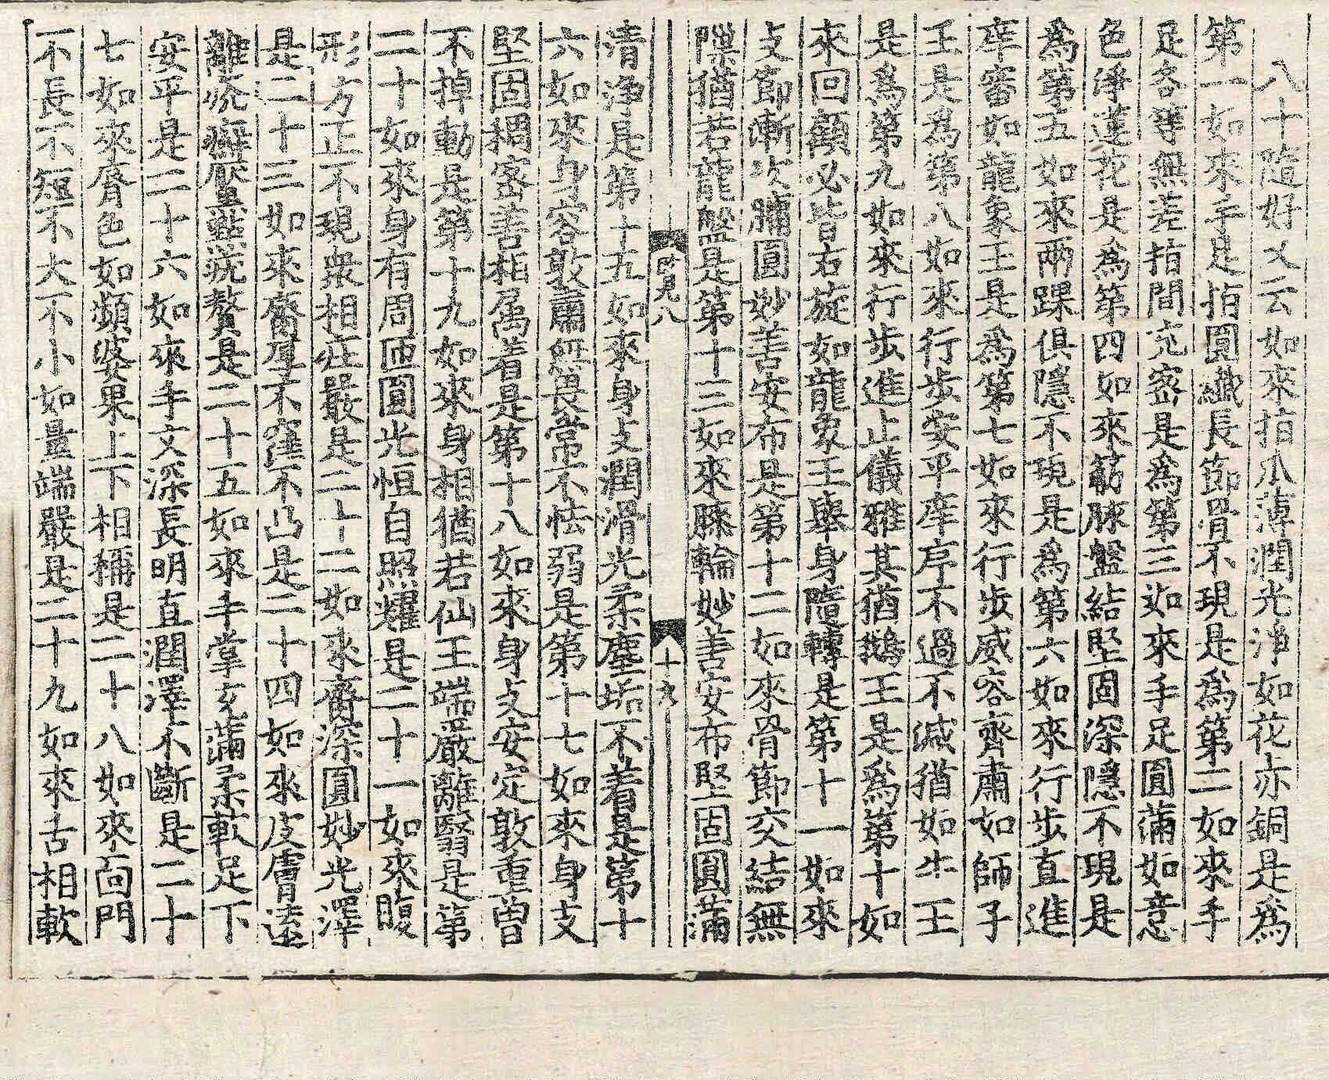 八十隨好文云如來指爪薄潤光淨如花赤銅是爲
第一如來手足指圓纖長節骨不現是爲第二如來手
足各等無差指間充密是爲第三如來手足圓滿如意
色淨蓮花是爲第四如來筋脉盤結堅固深隱不現是
爲第五如來兩踝俱隱不現是爲第六如來行步直進
庠審如龍象王是爲第七如來行步威容齊肅如師子
王是爲第八如來行步安平庠序不過不減猶如牛王
是爲第九如來行步進止儀雅其猶鵝王是爲第十如
來回顧必皆右旋如龍象王舉身隨轉是第十一如來
支節漸次𦟛圓妙善安布是第十二如來骨節交結無
隙猶若龍盤是第十三如來膝輪妙善安布堅固圓滿
八
十九
清淨是第十五如來身支潤滑光柔塵垢不着是第十
六如來身容敦肅無畏常不怯弱是第十七如來身支
堅固稠密善相属着是第十八如來身支安定敦重曽
不掉動是第十九如來身相猶若仙王端嚴離翳是第
二十如來身有周匝圓光恒自照耀是二十一如來腹
形方正不現衆相莊嚴是二十二如來臍深圓妙光澤
是二十三如來臍厚不窪不凸是二十四如來皮膚逺
離疥癬黶㸃疣贅是二十五如來手掌充滿柔軟足下
安平是二十六如來手文深長明直潤澤不斷是二十
七如來脣色如頻婆果上下相稱是二十八如來面門
不長不短不大不小如量端嚴是二十九如來舌相軟